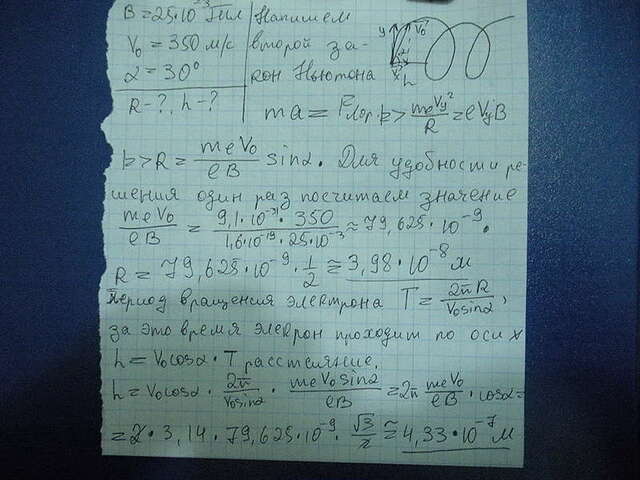 B = 25·10⁻³ Тл | Напишем
V₀ = 350 м/с | второй за-
α = 30° | кон Ньютона
R - ?, h - ?
y V₀ h
ma = Fлор. => meVy²/R = eVyB
=> R = meV₀/eB sinα. Для удобности ре-
шения один раз посчитаем значение
meV₀/eB = 9,1·10⁻³¹·350/1,6·10⁻¹⁹·25·10⁻³ ≈ 79,625·10⁻⁹.
R = 79,625·10⁻⁹·1/2 ≅ 3,98·10⁻⁸ м
период вращения электрона T = 2πR/V₀sinα,
за это время элекрон проходит по оси x
h = V₀cosα·T расстояние.
h = V₀cosα · 2π/V₀sinα · meV₀sinα/eB = 2π meV₀/eB · cosα =
= 2·3,14·79,625·10⁻⁹·√3/2 ≅ 4,33·10⁻⁷ м